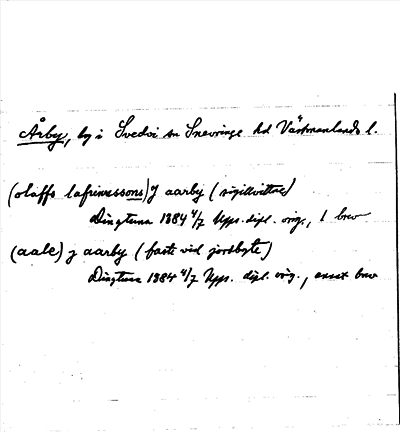 Årby, by i Svedvi sn Snevringe hd Västmanlands l.
(olaffs lafrinzssons) J aarby (sigillvittne)
Dingtuna 1384 4/7 Upps. dipl. orig., 1 brev
(aale) j aarby (faste vid jordbyte)
Dingtuna 1384 4/7 Upps. dipl. orig., annat brev